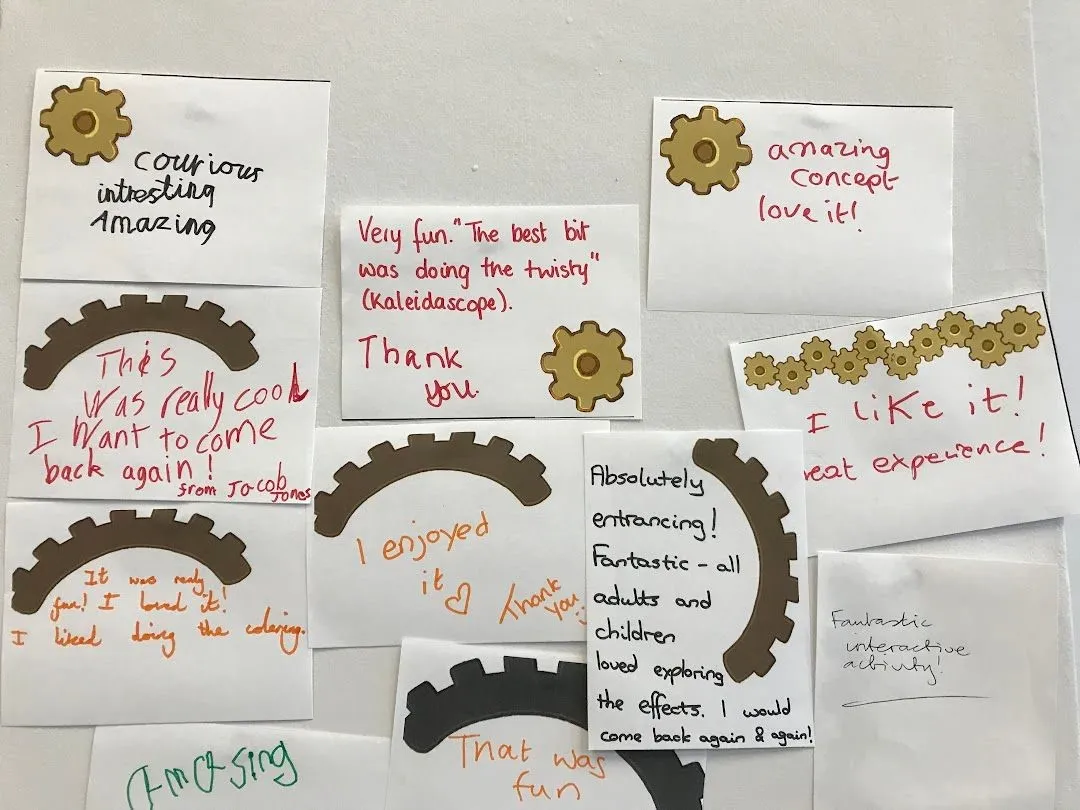 Courious
intresting
Amazing
amazing
concept
love it!
Very fun. "The best bit
was doing the twisty"
(Kaleidascope).
Thank
you.
This
was really cool
I want to come
back again!
from Jacob
Jones
I like it!
reat experience!
I enjoyed
it ♡
Thank
you :
Absolutely
entrancing!
Fantastic - all
adults and
children
loved exploring
the effects. I would
come back again & again!
It was realy
fun! I loved it!
I liked doing the colering.
Fantastic
interactive
activity!
That was
fun
amasing